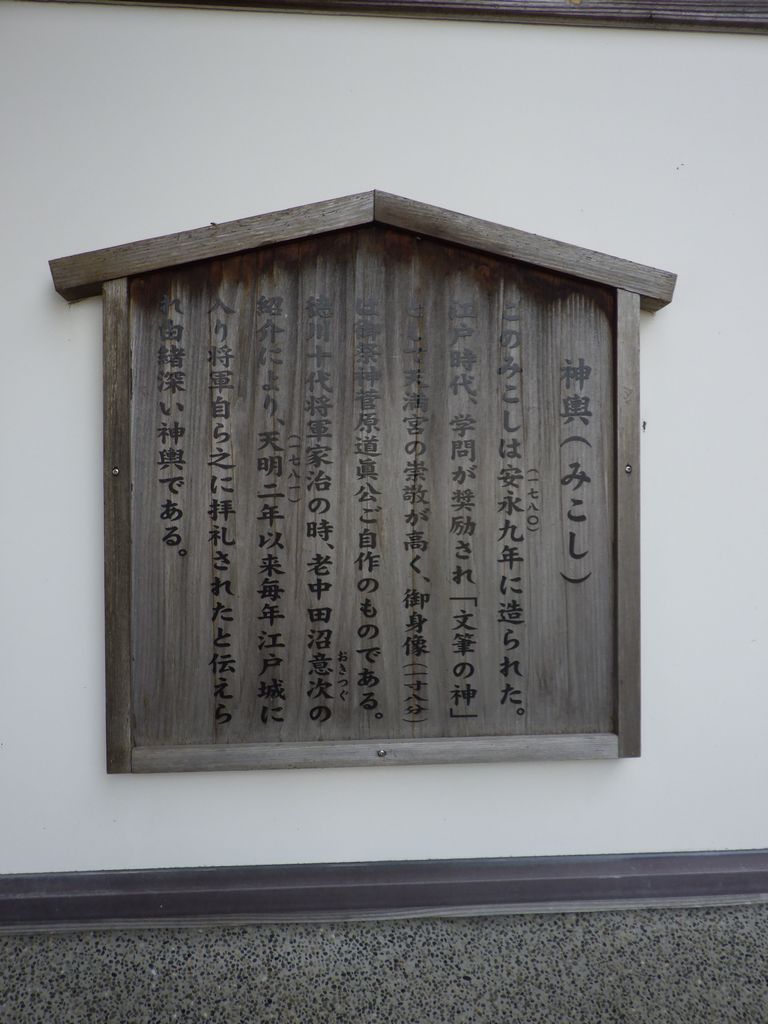 神輿(みこし)
このみこしは安永九年に造られた。
(一七八〇)
江戸時代、学問が奨励され「文筆の神」
として天満宮の崇敬が高く、御身像(一寸八分)
は御祭神菅原道眞公ご自作のものである。
徳川十代将軍家治の時、老中田沼意次の
おきつぐ
紹介により、天明二年以来毎年江戸城に
(一七八一)
入り将軍自ら之に拝礼されたと伝えら
れ由緒深い神輿である。